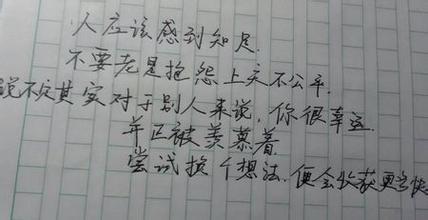 人应该感到知足.
不要老是抱怨上天不公平.
说不定其实对于别人来说,你很幸运.
并正被羡慕着
尝试换个想法.便会收获更多快